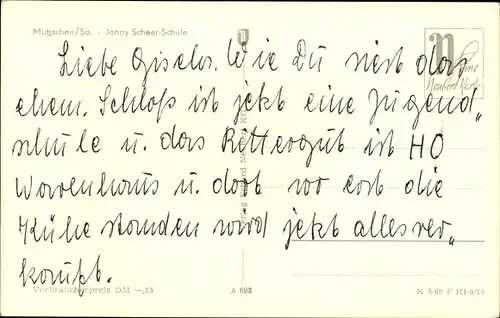 Mutzschen/Sa. - Jonny Scheer-Schule
Liebe Gisela. Wie Du siest das
ehem. Schloß ist jetzt eine Jugend„
schule u. das Rittergut ist HO
Warenhaus u. dort wo erst die
Kühe standen wird jetzt alles ver„
kauft.
Verbraucherpreis DM —,15
A 692
K 5-60 F III/6/75